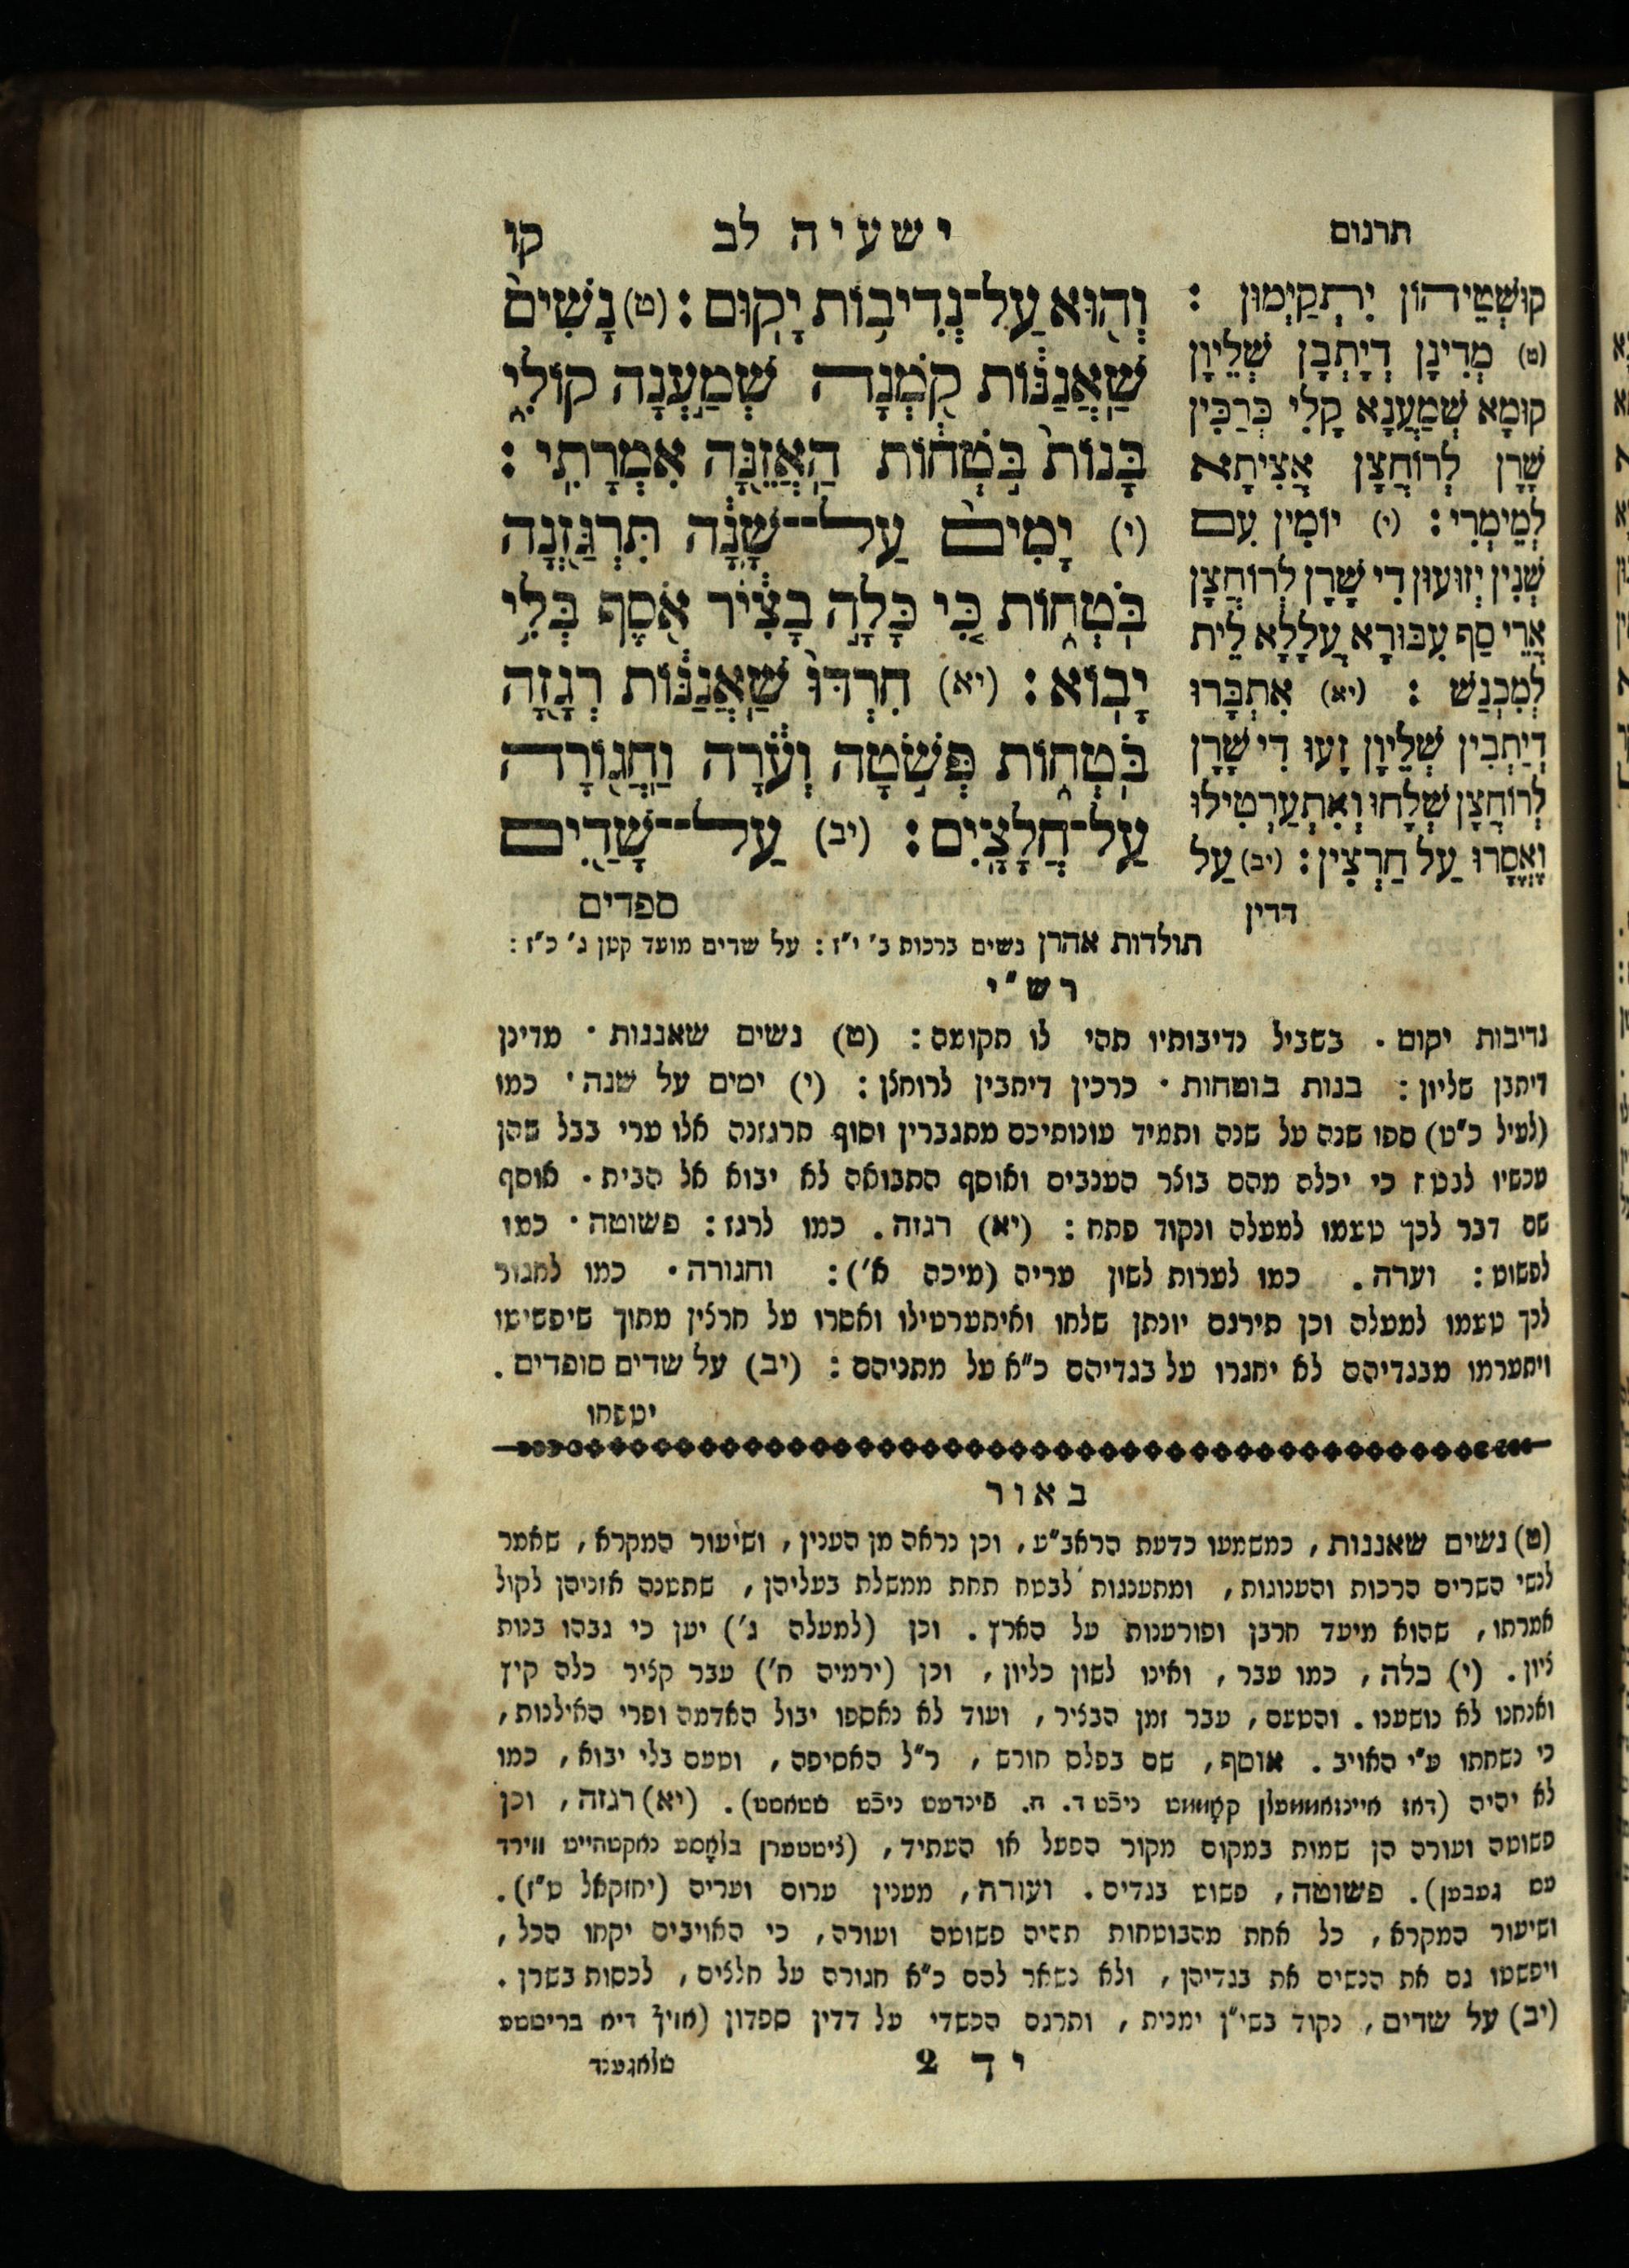 תרגום
ישעיה לב
קו
קוּשְׁטֵיהוֹן יִתְקַיְמוּן :
(ט) מְדִינָן דְיָתְבָן שְׁלֵיוָן
קוּמָא שְׁמַעֲנָא קָלִי כְּרַכִּין
שָׁרָן לְרוֹחֲצָן אֲצִיתָא
לְמֵימְרִי : (י) יוֹמִין עִם
שְׁנִין יְזוּעוּן דִי שָׁרָן לְרוֹחֲצָן
אֲרֵי סַף עִבּוּרָא עֲלָלָא לֵית
לְמִכְנַשׁ : (יא) אִתְבָּרוּ
דְיַתְבִין שְׁלֵיוָן זָעוּ דִי שָׁרָן
לְרוֹחֲצָן שְׁלָחוּ וְאִתְעַרְטִילוּ
וֶאֱסָרוּ עַל חַרְצִין : (יב) עַל
דדין
וְה֖וּא עַל־נְדִיב֥וֹת יָקֽוּם : (ט) נָשִׁים֙
שַֽׁאֲנַנּ֔וֹת קֹ֖מְנָה שְׁמַ֣עְנָה קוֹלִ֑י
בָּנוֹת֙ בֹּֽטְח֔וֹת הַֽאֲזֵ֖נָּה אִמְרָתִֽי :
(י) יָמִים֙ עַל־שָׁנָ֔ה תִּרְגַּ֖זְנָה
בֹּֽטְח֑וֹת כִּ֚י כָּלָ֣ה בָצִ֔יר אֹ֖סֶף בְּלִ֥י
יָבֽוֹא : (יא) חִרְדוּ֙ שַֽׁאֲנַנּ֔וֹת רְגָ֖זָה
בֹּֽטְח֑וֹת פְּשֹׁ֣טָה וְעֹ֔רָה וַֽחֲג֖וֹרָה
עַל־חֲלָצָֽיִם : (יב) עַל־שָׁדַ֖יִם
ספדים
תולדות אהרן נשים ברכות ב׳ י״ז : על שדים מועד קטן ג׳ כ״ז :
רש״י
נדיבות יקום . בשביל נדיבותיו תהי לו תקומה : (ט) נשים שאננות . מדינן
דיתבן שליון : בנות בוטחות . כרכין דיתבין לרוחצן : (י) ימים על שנה . כמו
(לעיל כ״ט) ספו שנה על שנה ותמיד עונותיכם מתגברין וסוף תרגזנה אלו ערי בבל שהן
עכשיו לבטח כי יכלה מהם בוצר הענבים ואוסף התבואה לא יבוא אל הבית . אוסף
שם דבר לכך טעמו למעלה ונקוד פתח : (יא) רגזה . כמו לרגז : פשוטה . כמו
לפשוט : וערה . כמו לערות לשון עריה (מיכה א׳) : וחגורה . כמו לחגור
לכך טעמו למעלה וכן תירגם יונתן שלחו ואיתערטילו ואסרו על חרצין מתוך שיפשיטו
ויתערמו מבגדיהם לא יחגרו על בגדיהם כ״א על מתניהם : (יב) על שדים סופדים .
יטפחו
באור
(ט) נשים שאננות , כמשמעו כדעת הראב״ע , וכן נראה מן הענין , ושיעור המקרא , שאמר
לנשי השרים הרכות והענוגות , ומתענגות לבטח תחת ממשלת בעליהן , שתטנה אזניהן לקול
אמרתו , שהוא מיעד חרבן ופורענות על הארץ . וכן (למעלה ג׳) יען כי גבהו בנות
ציון . (י) כלה , כמו עבר , ואינו לשון כליון , וכן (ירמיה ח׳) עבר קציר כלה קיץ
ואנחנו לא נושענו . והטעם , עבר זמן הבציר , ועוד לא נאספו יבול האדמה ופרי האילנות ,
כי נשחתו ע״י האויב . אוסף , שם בפלס חורש , ר״ל האסיפה , וטעם בלי יבוא , כמו
לא יהיה (דאז איינזאממעלן קאָממט ניכֿט ד. ה. פֿינדעט ניכֿט שטאטט) . (יא) רגזה , וכן
פשוטה ועורה הן שמות במקום מקור הפעל או העתיד , (ציטטערן בלאָסע נאקטהייט ווירד
עס געבען) . פשוטה , פשוט בגדים . ועורה , מענין ערום ועריה (יחזקאל ט״ז) .
ושיעור המקרא , כל אחת מהבוטחות תהיה פשוטה ועורה , כי האויבים יקחו הכל ,
ויפשטו גם את הנשים את בגדיהן , ולא נשאר להם כ״א חגורה על חלצים , לכסות בשרן .
(יב) על שדים , נקוד בשי״ן ימנית , ותרגם הכשדי על דדין ספדון (אויף דיא בריסטע
יד 2
שלאגענד